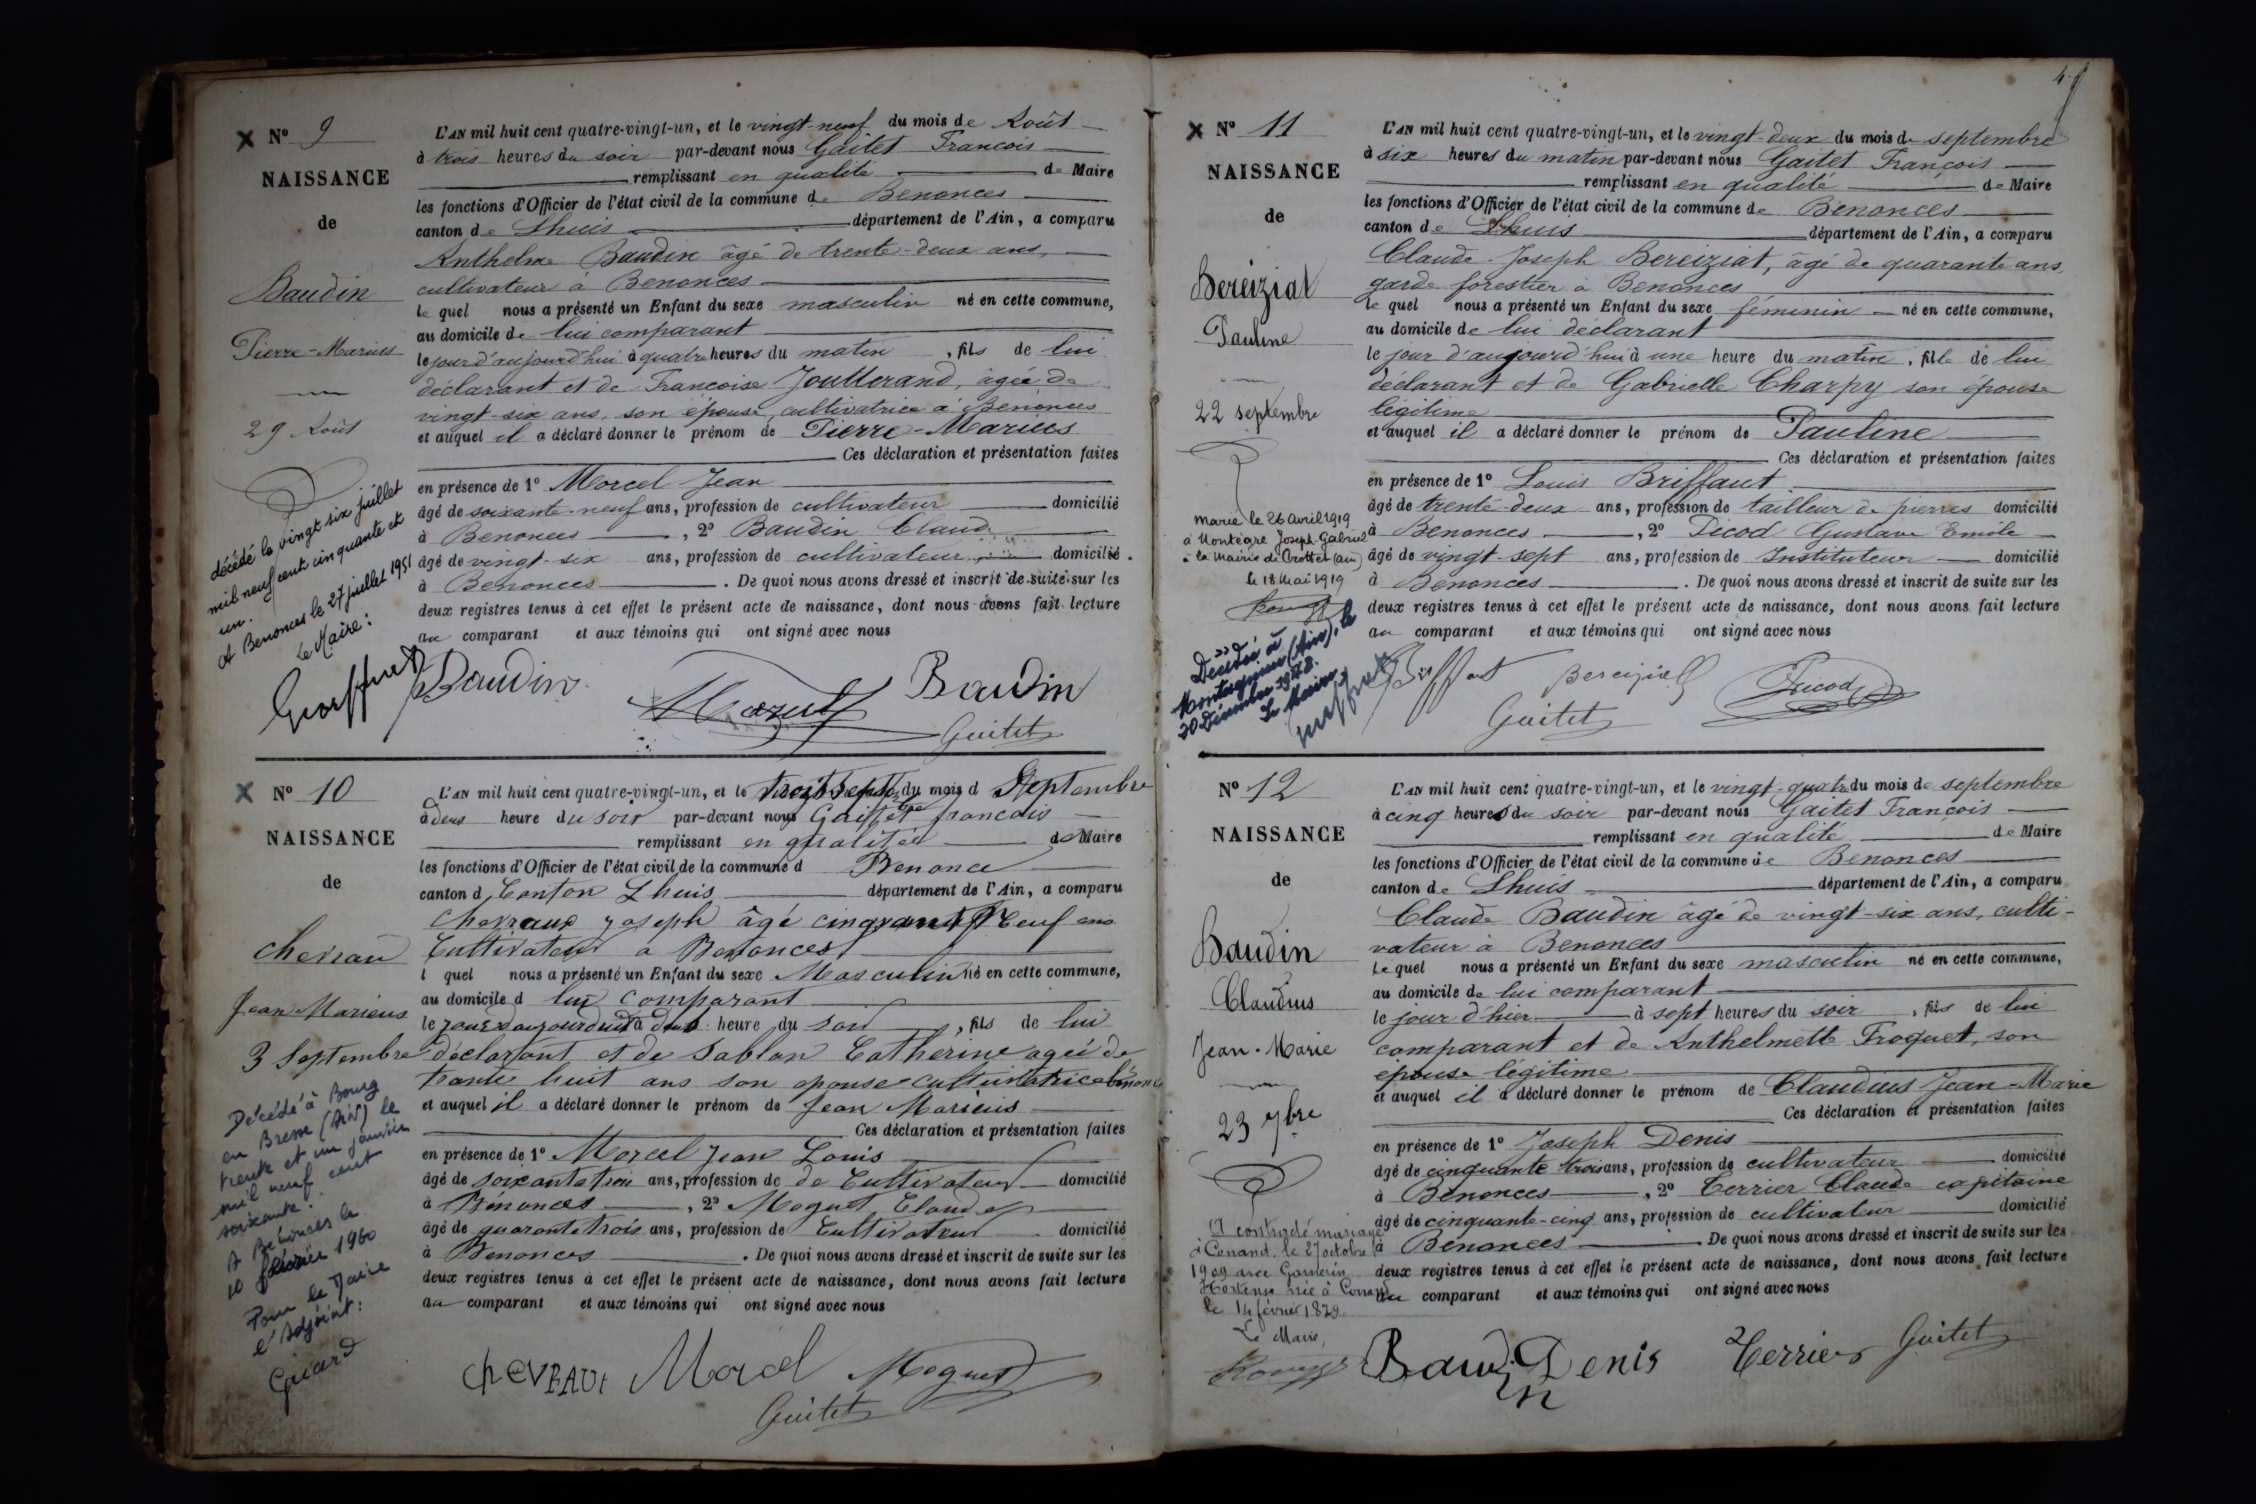 N° 9
NAISSANCE
de
Baudin
Pierre-Marius
29 Août
décédé le vingt six juillet
mil neuf cent cinquante et
un.
A Benonces le 27 juillet 1951
Le Maire:
L'AN mil huit cent quatre-vingt-un, et le vingt-neuf du mois de Août
à trois heures du soir par-devant nous Gaitet Francois
remplissant en qualité de Maire
les fonctions d'Officier de l'état civil de la commune de Benonces
canton de Lhuis département de l'Ain, a comparu
Anthelme Baudin âgé de trente-deux ans,
cultivateur à Benonces
le quel nous a présenté un Enfant du sexe masculin né en cette commune,
au domicile de lui comparant
le jour d'aujourd'hui à quatre heures du matin, fils de lui
déclarant et de Francoise Joutterand, âgée de
vingt-six ans, son épouse, cultivatrice à Benonces
et auquel il a déclaré donner le prénom de Pierre-Marius
Ces déclaration et présentation faites
en présence de 1° Morcel Jean
âgé de soixante-neuf ans, profession de cultivateur domicilié
à Benonces, 2° Baudin Claude
âgé de vingt-six ans, profession de cultivateur domicilié
à Benonces. De quoi nous avons dressé et inscrit de suite sur les
deux registres tenus à cet effet le présent acte de naissance, dont nous avons fait lecture
au comparant et aux témoins qui ont signé avec nous
Baudin Baudin
Guitet
N° 10
NAISSANCE
de
chevrau
Jean Marieus
3 Septembre
Décédé à Bourg
en Bresse (Ain) le
trente et un janvier
mil neuf cent
soixante.
A Benonces le
10 février 1960
Pour le Maire
l'Adjoint:
L'AN mil huit cent quatre-vingt-un, et le trois Septembre du mois d Septembre
à deus heure du soir par-devant nous Gaittet francois
remplissant en qualitéé de Maire
les fonctions d'Officier de l'état civil de la commune d Benonce
canton d Canton Lhuis département de l'Ain, a comparu
chevraux joseph âgé cinquante Neuf ans
Cultivateur a Benonces
l quel nous a présenté un Enfant du sexe Masculin né en cette commune,
au domicile d lui comparant
le jour daujourduit à deus heure du soir, fils de lui
déclarant et de Sablon Catherine ageé de
trante huit ans son epouse cultuivatrice Bénonces
et auquel il a déclaré donner le prénom de Jean Marieus
Ces déclaration et présentation faites
en présence de 1° Morcel Jean Louis
âgé de soixantetroi ans, profession de de Cultivateur domicilié
à Bénonces, 2° Moguet Claude
âgé de quarantetrois ans, profession de Cultivateur domicilié
à Benonces. De quoi nous avons dressé et inscrit de suite sur les
deux registres tenus à cet effet le présent acte de naissance, dont nous avons fait lecture
au comparant et aux témoins qui ont signé avec nous
chEVRAUx Morcel Moguet
Guitet
N° 11
NAISSANCE
de
Bereiziat
Pauline
22 septembre
marié le 26 avril 1919
à Montégre Joseph-Gabriel
à la Mairie de Crottet (ain)
le 18 Mai 1919
Décédée à
(Ain), le
30 Décembre
Le Maire
L'AN mil huit cent quatre-vingt-un, et le vingt-deux du mois de septembre
à six heures du matin par-devant nous Gaitet François
remplissant en qualité de Maire
les fonctions d'Officier de l'état civil de la commune de Benonces
canton de Lhuis département de l'Ain, a comparu
Claude-Joseph Bereiziat, âgé de quarante ans,
garde forestier à Benonces
le quel nous a présenté un Enfant du sexe féminin né en cette commune,
au domicile de lui déclarant
le jour d'aujourd'hui à une heure du matin, fille de lui
déclarant et de Gabrielle Charpy son épouse
légitime
et auquel il a déclaré donner le prénom de Pauline
Ces déclaration et présentation faites
en présence de 1° Louis Briffaut
âgé de trente-deux ans, profession de tailleur de pierres domicilié
à Benonces, 2° Picod Gustave Emile
âgé de vingt-sept ans, profession de Instituteur domicilié
à Benonces. De quoi nous avons dressé et inscrit de suite sur les
deux registres tenus à cet effet le présent acte de naissance, dont nous avons fait lecture
au comparant et aux témoins qui ont signé avec nous
Bereiziat Picod
Guitet
N° 12
NAISSANCE
de
Baudin
Claudius
Jean-Marie
23 7bre
A contracté mariage
à Conand le 27 octobre
1909 avec Garnerin
Hortense née à Conand
le 14 février 1879.
Le Maire,
L'AN mil huit cent quatre-vingt-un, et le vingt-quatre du mois de septembre
à cinq heures du soir par-devant nous Gaitet François
remplissant en qualité de Maire
les fonctions d'Officier de l'état civil de la commune de Benonces
canton de Lhuis département de l'Ain, a comparu
Claude Baudin âgé de vingt-six ans, culti-
vateur à Benonces
Le quel nous a présenté un Enfant du sexe masculin né en cette commune,
au domicile de lui comparant
le jour d'hier à sept heures du soir, fils de lui
comparant et de Anthelmette Froquet, son
épouse légitime
et auquel il a déclaré donner le prénom de Claudius Jean-Marie
Ces déclaration et présentation faites
en présence de 1° Joseph Denis
âgé de cinquante trois ans, profession de cultivateur domicilié
à Bénonces, 2° Terrier Claude capitaine
âgé de cinquante-cinq ans, profession de cultivateur domicilié
à Benonces De quoi nous avons dressé et inscrit de suite sur les
deux registres tenus à cet effet le présent acte de naissance, dont nous avons fait lecture
au comparant et aux témoins qui ont signé avec nous
Baudin Denis Terrier Guitet